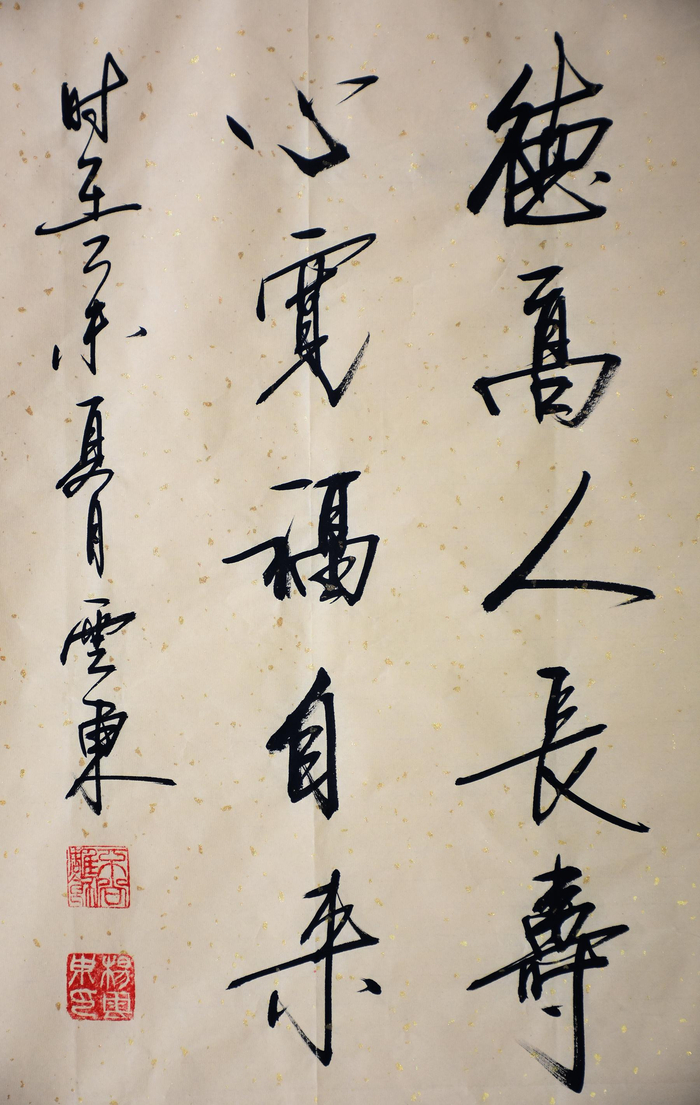 德高人長壽
心寬福自来
时至乙未夏月雲東
楊雲東印